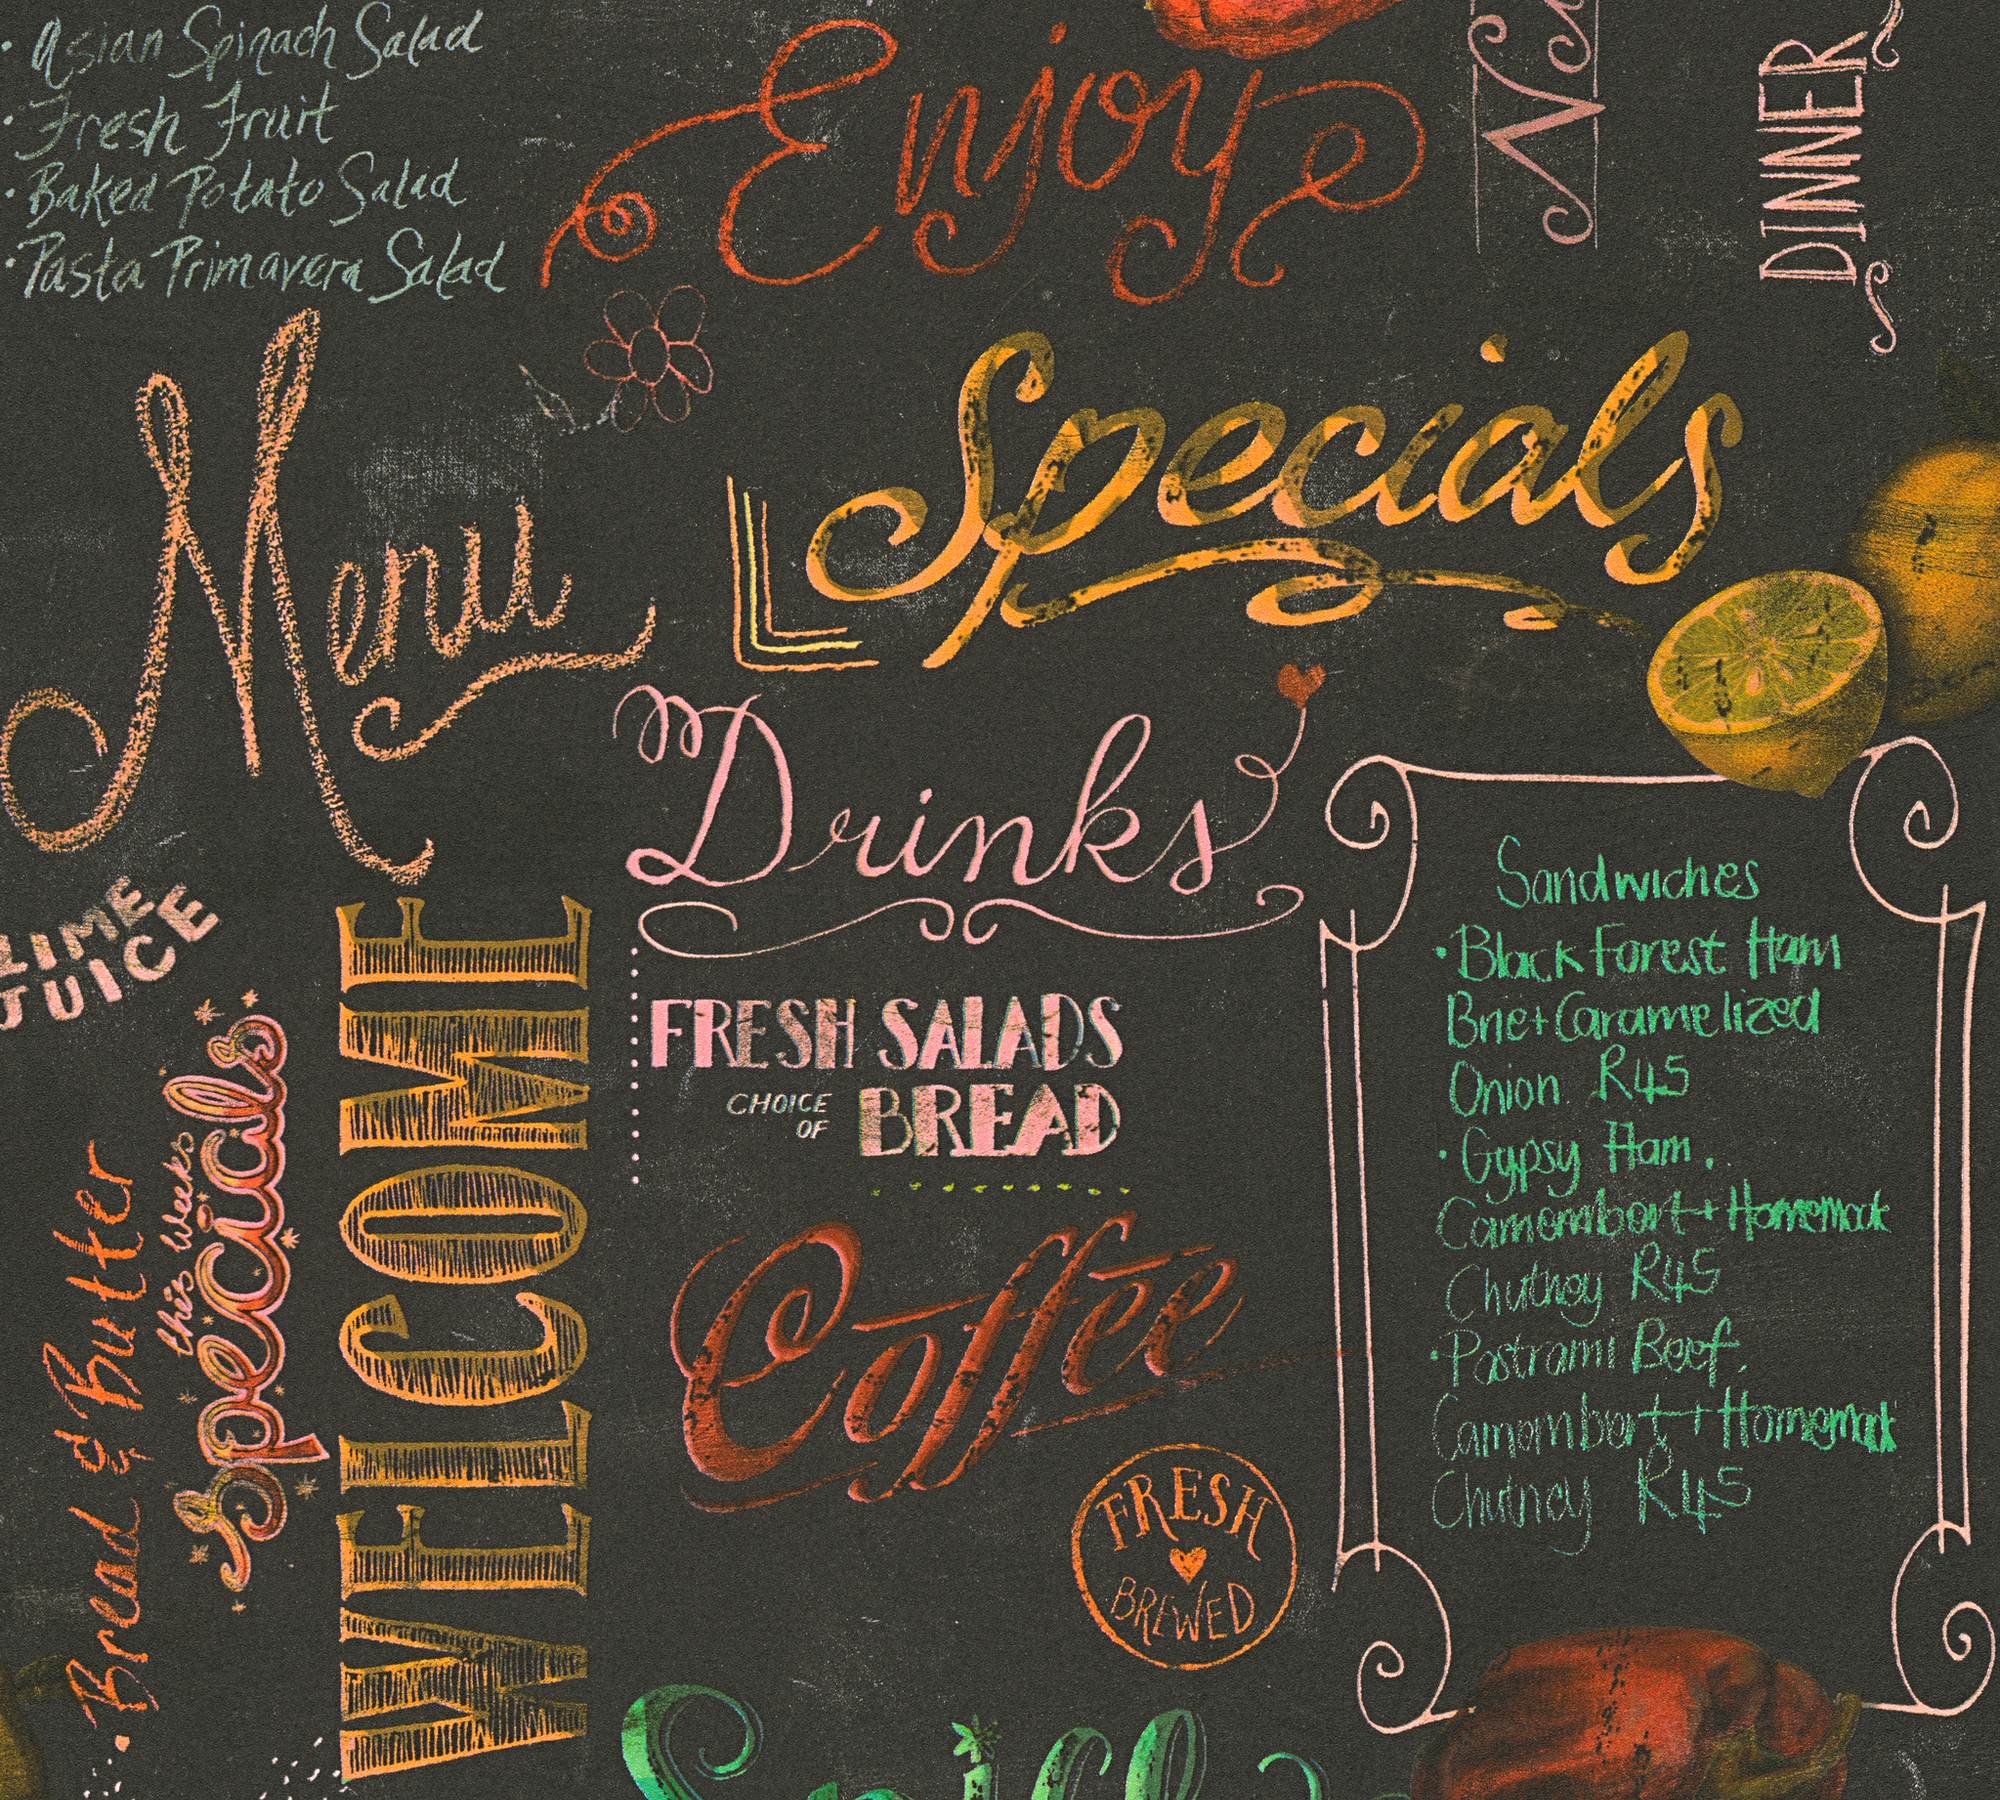 · Asian Spinach Salad
· Fresh Fruit
· Baked Potato Salad
· Pasta Primavera Salad
Enjoy
DINNER
Menu
Specials
Drinks
LIME
JUICE
FRESH SALADS
CHOICE
OF
BREAD
WELCOME
this weeks
Specials
Bread & Butter
Coffee
FRESH
BREWED
Sandwiches
· Black Forest Ham
Brie + Caramelized
Onion R45
· Gypsy Ham.
Camembert + Homemade
Chutney R45
· Pastrami Beef.
Camembert + Homemade
Chutney R45